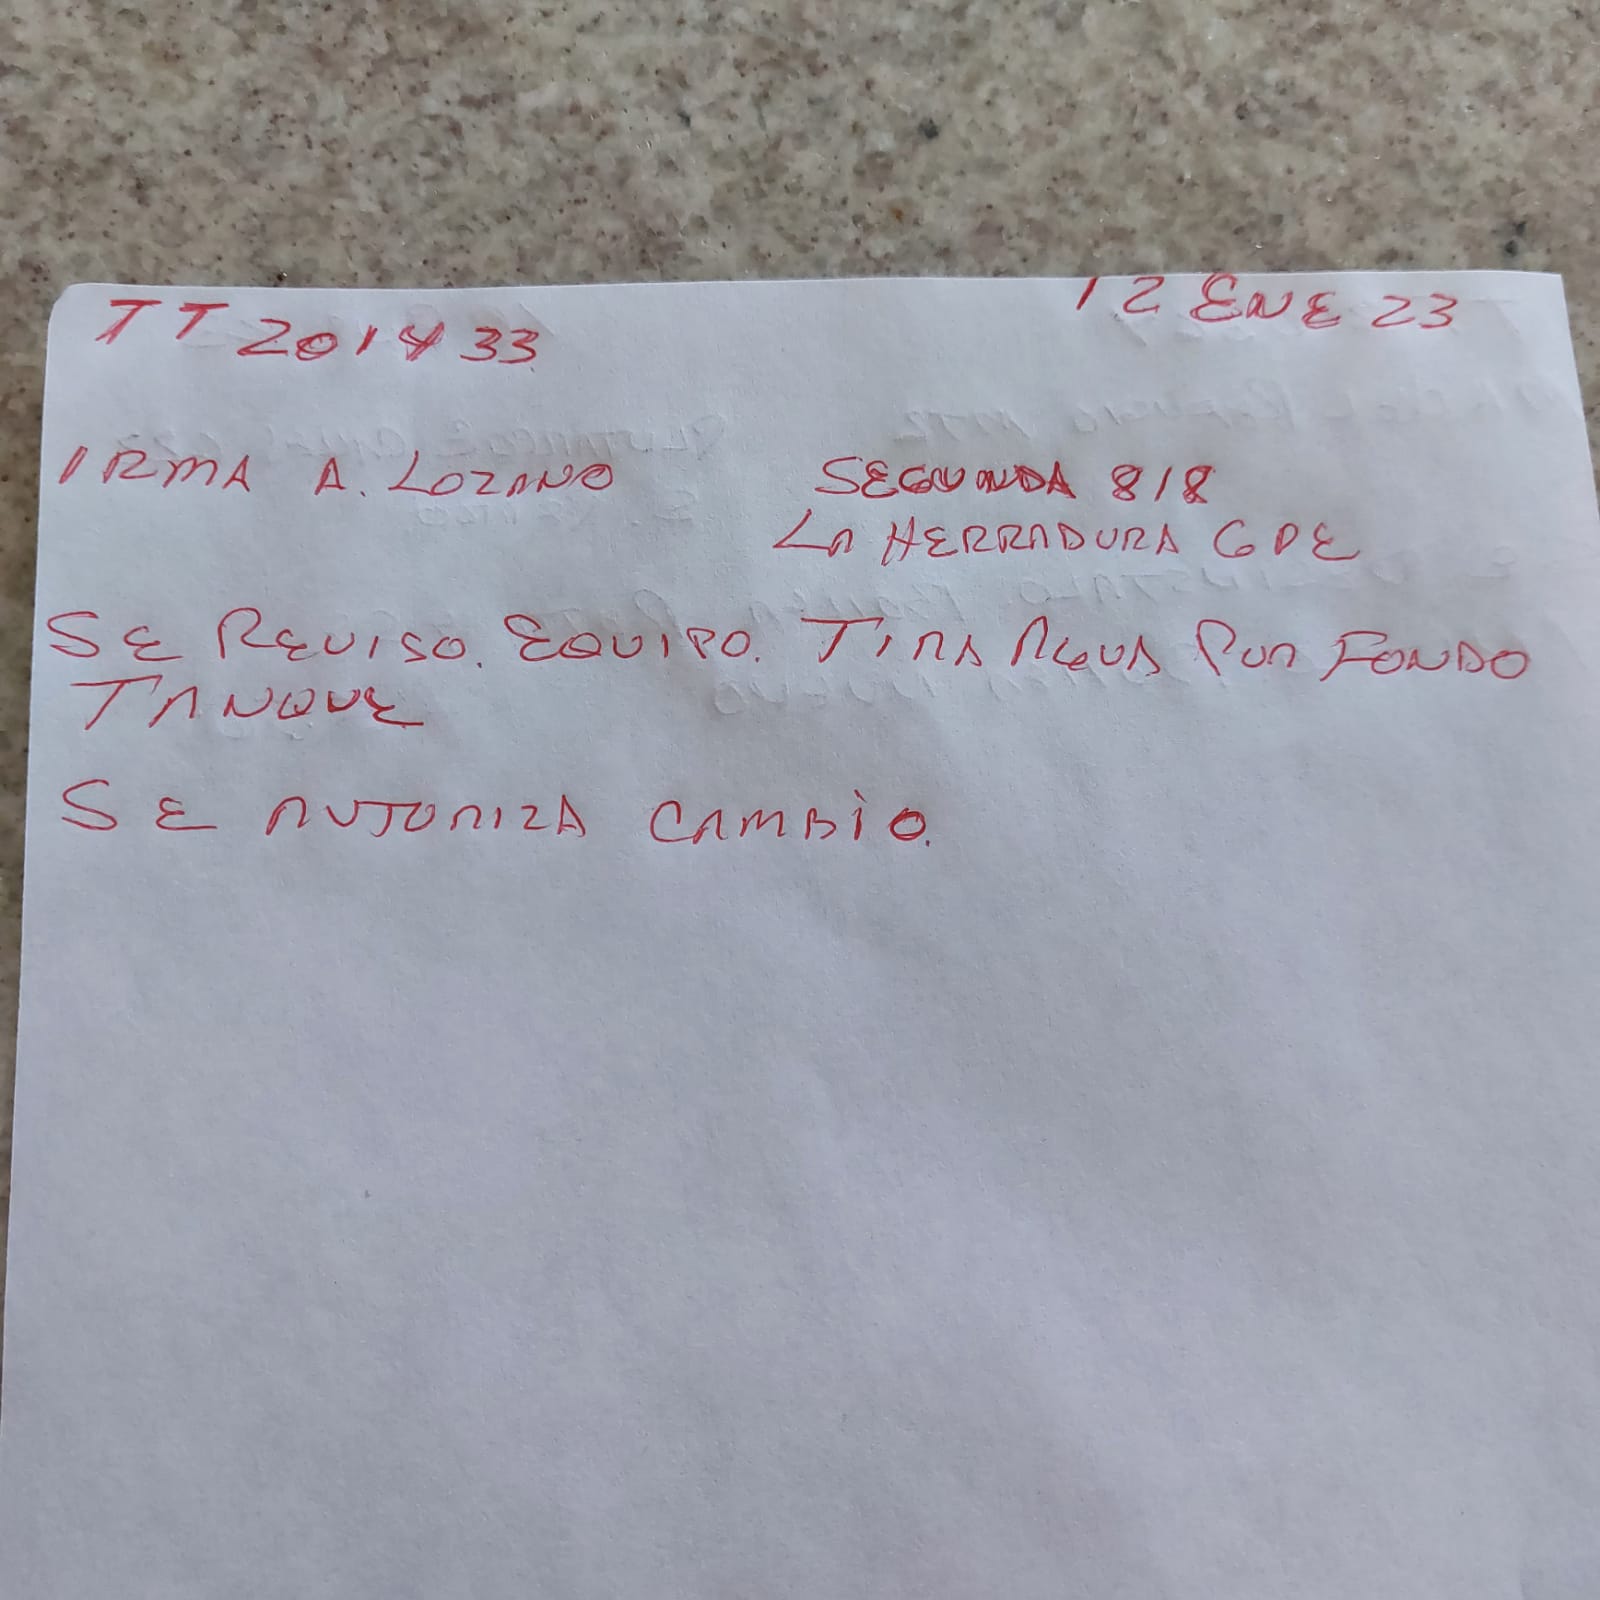 TT 201433
12 ENE 23
IRMA A. LOZANO
SEGUNDA 818
LA HERRADURA GPE
SE REVISO. EQUIPO. TIRA AGUA POR FONDO
TANQUE
SE AUTORIZA CAMBIO.